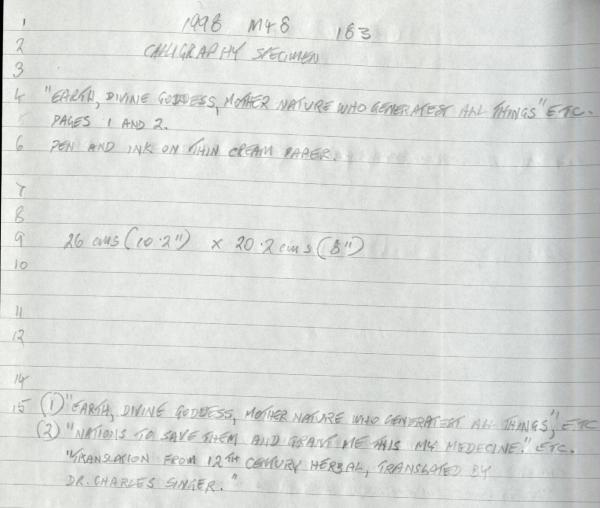 1 1998 M48 163
2 CALLIGRAPHY SPECIMEN
3
4 "EARTH, DIVINE GODDESS, MOTHER NATURE WHO GENERATEST ALL THINGS" ETC.
5 PAGES 1 AND 2.
6 PEN AND INK ON THIN CREAM PAPER.
7
8
9 26 cms (10.2") x 20.2 cms (8")
10
11
12
14
15 (1) "EARTH, DIVINE GODDESS, MOTHER NATURE WHO GENERATEST ALL THINGS", ETC
(2) "NATIONS TO SAVE THEM AND GRANT ME THIS MY MEDECINE." ETC.
"TRANSLATION FROM 12TH CENTURY HERBAL, TRANSLATED BY
DR. CHARLES SINGER."